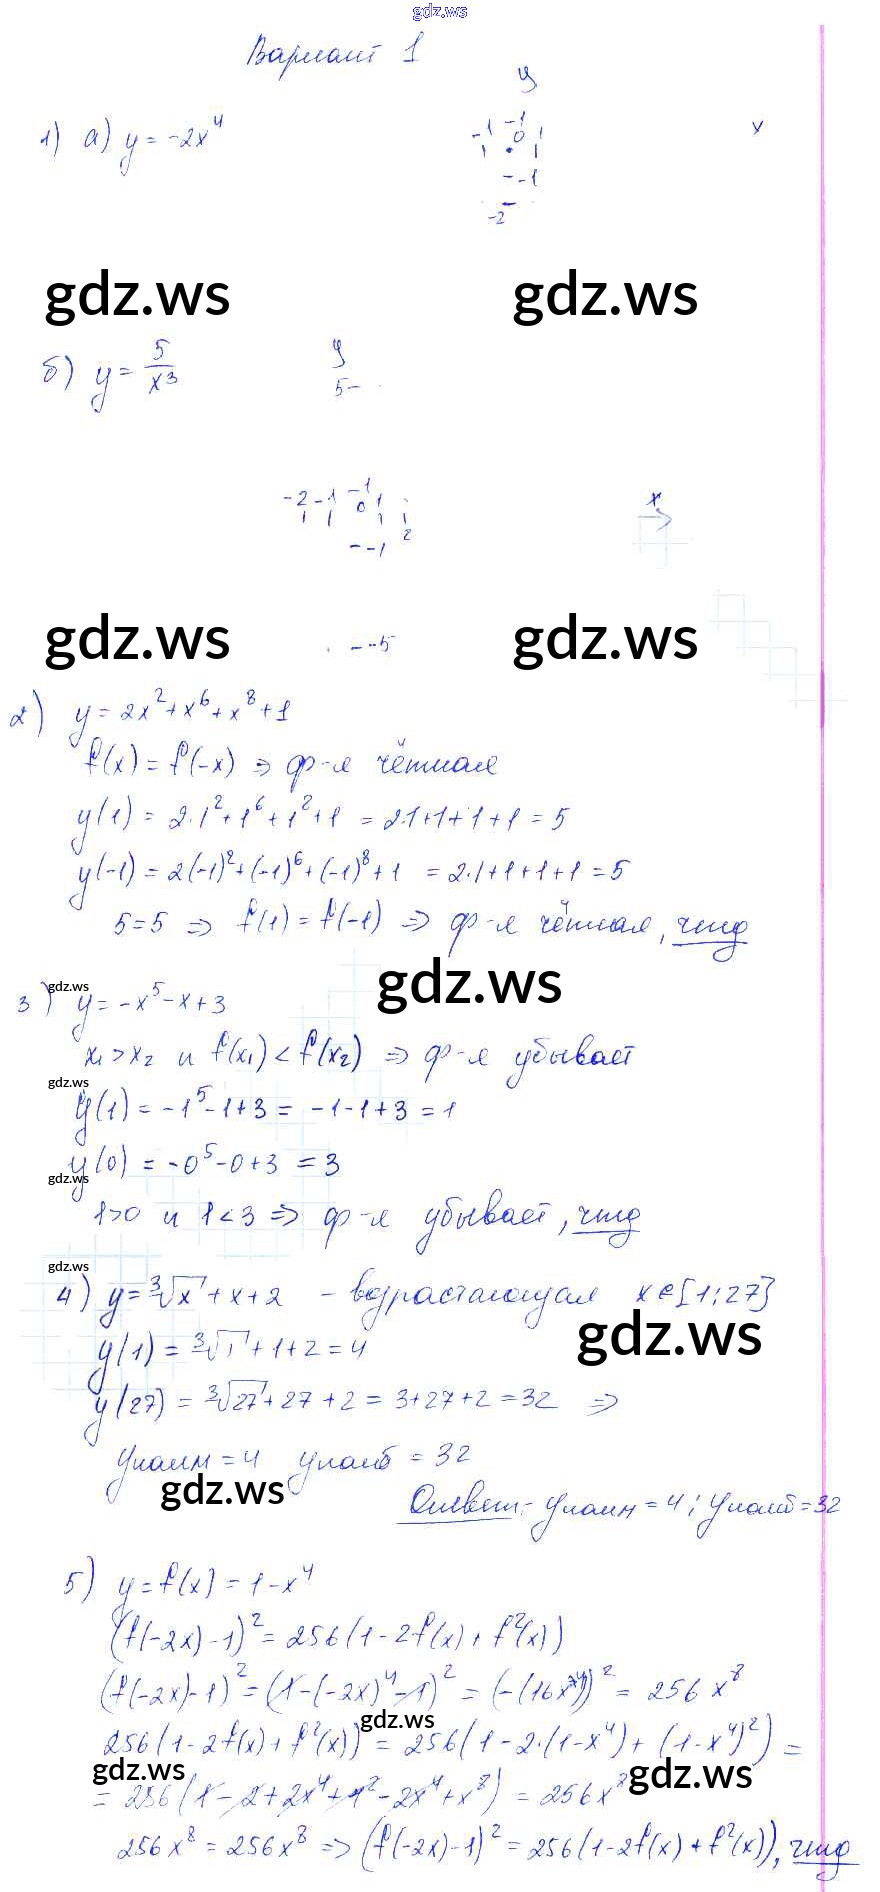 gdz.ws
Вариант 1
y
1) а) y = -2x⁴
-1 -1 0 1 x
--1
-2
gdz.ws gdz.ws
б) y = 5/x³
y
5-
-2 -1 -1 0 1 x
2
--1
gdz.ws gdz.ws
--5
2) y = 2x² + x⁶ + x⁸ + 1
f(x) = f(-x) ⇒ ф-я чётная
y(1) = 2·1² + 1⁶ + 1² + 1 = 2·1+1+1+1 = 5
y(-1) = 2(-1)² + (-1)⁶ + (-1)⁸ + 1 = 2·1+1+1+1 = 5
5=5 ⇒ f(1) = f(-1) ⇒ ф-я чётная, чтд
gdz.ws gdz.ws
3) y = -x⁵ - x + 3
x₁ > x₂ и f(x₁) < f(x₂) ⇒ ф-я убывает
gdz.ws
y(1) = -1⁵ - 1 + 3 = -1 - 1 + 3 = 1
y(0) = -0⁵ - 0 + 3 = 3
gdz.ws
1>0 и 1<3 ⇒ ф-я убывает, чтд
gdz.ws
4) y = ³√x + x + 2 - возрастающая x∈[1;27]
gdz.ws
y(1) = ³√1 + 1 + 2 = 4
y(27) = ³√27 + 27 + 2 = 3 + 27 + 2 = 32 ⇒
yнаим = 4 yнаиб = 32
gdz.ws
Ответ: yнаим = 4; yнаиб = 32
5) y = f(x) = 1 - x⁴
(f(-2x) - 1)² = 256(1 - 2f(x) + f²(x))
(f(-2x) - 1)² = (1 - (-2x)⁴ - 1)² = (-(16x⁴))² = 256x⁸
gdz.ws
256(1 - 2f(x) + f²(x)) = 256(1 - 2·(1 - x⁴) + (1 - x⁴)²) =
gdz.ws gdz.ws
= 256(1 - 2 + 2x⁴ + 1² - 2x⁴ + x⁸) = 256x⁸
256x⁸ = 256x⁸ ⇒ (f(-2x) - 1)² = 256(1 - 2f(x) + f²(x)), чтд